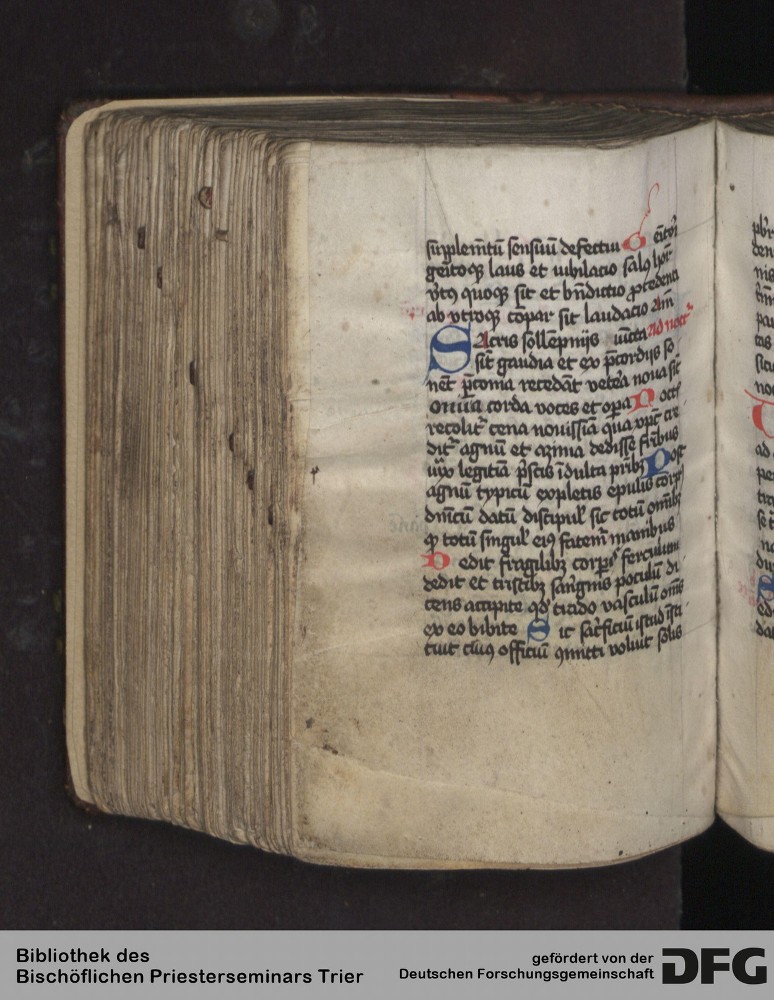 supplem̄tū sensuū defectui Geīt̄ori
geītoqꝫ laus et iubilacio salꝰ hōr
v̄tꝰ quoqꝫ sit et bn̄dictio ꝓcedenti
ab vtroqꝫ cōpar sit laudacio am̄
Sacris sollēpniis iūcta ad noct̄
sīt gaudia et ex p̄cordiis so
nēt p̄conia recedāt vetēa noua sīt
oīnia corda voces et oꝑa Noctꝭ
recolit᷑ cena nouissīa qua xp̄c cre
dit᷑ agnū et azima dedisse fr̄ibus
iux̄ legitīa p̄scis īdulta pr̄ibꝫ Post
agnū typicū expletis epulis corpꝰ
dn̄icū datū discipul᷒ sic totū om̄ibꝫ
ꝙ totū singul᷒ eiꝰ fatem᷑ manibus
Dedit fragilibꝫ corpīs ferculum
dedit et tristibꝫ sangnīs poculū di
cens accipite qd̄ trado vasculū om̄s
ex eo bibite Sic sac̄ficiū istud īsti
tuit cuiꝰ officiū ꝯmitti voluit solis
Bibliothek des
Bischöflichen Priesterseminars Trier
gefördert von der
Deutschen Forschungsgemeinschaft
DFG